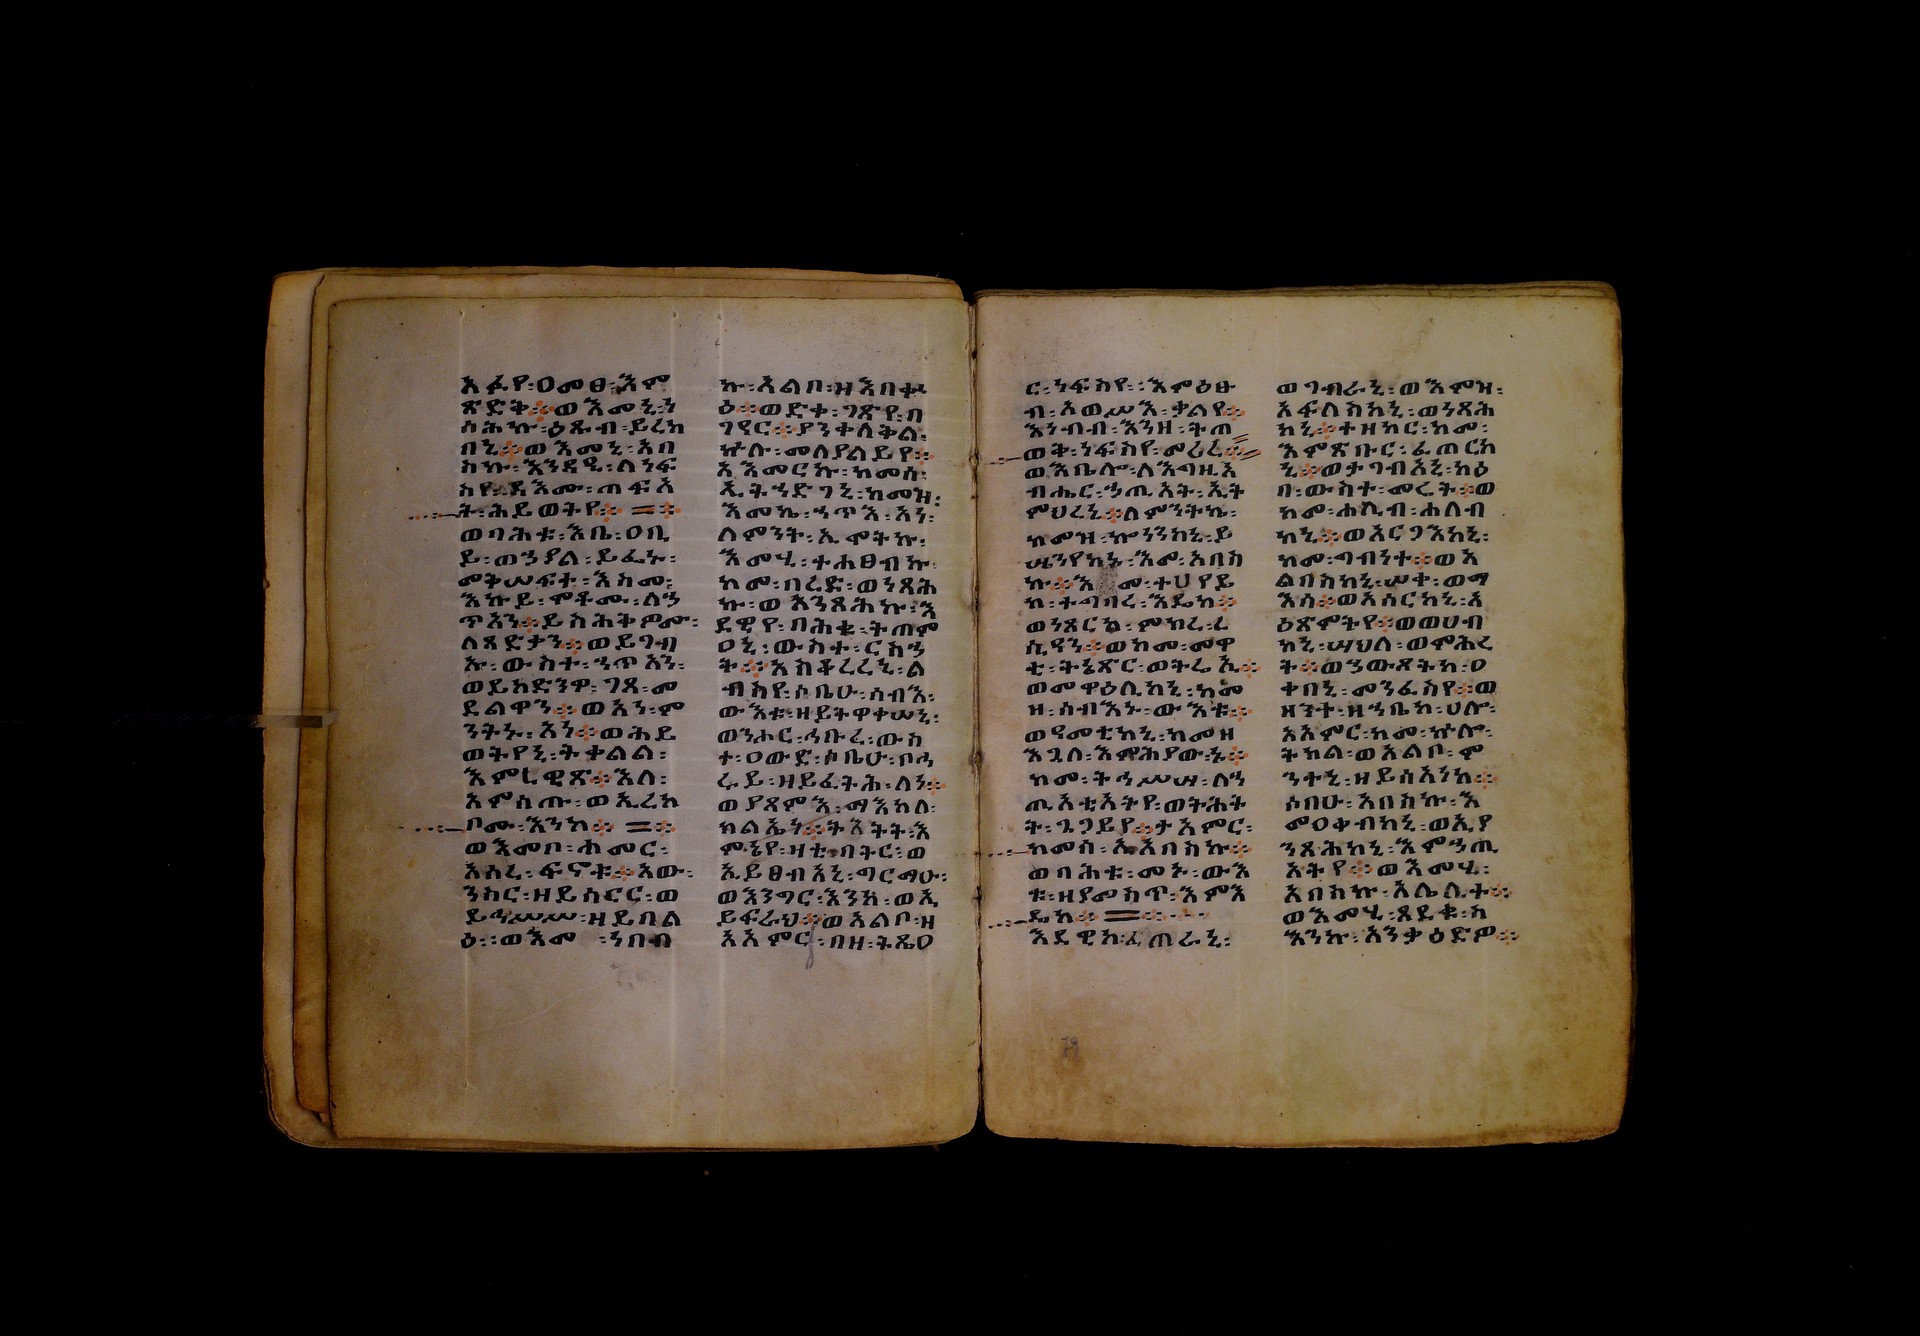 አፈየ፡ዐመፀ፡እም
ጽድቅ፨ወእመኒ፡ን
ስሕኩ፡ዕጹብ፡ይረከ
በኒ፨ወእመኒ፡አበ
ስኩ፡እንዳዒ፡ለነፍ
ስየ፡እስመ፡ጠፍአ
ት፡ሕይወትየ፨
ወባሕቱ፡እቤ፡ዐቢ
ይ፡ወኃያል፡ይፌኑ፡
መቅሠፍተ፡እስመ፡
እኩይ፡ሞቶሙ፡ለኃ
ጥአን፨ይስሕቅዎሙ፡
ለጻድቃን፨ወይገብ
ኡ፡ውስተ፡ኃጥአን፡
ወይከድንዋ፡ገጸ፡መ
ደልዋን፨ወአነ፡ም
ንትኑ፡አነ፨ወሕይ
ወትየኒ፡ትቀልል፡
እምሯጺ፨እለ፡
አምሰጡ፡ወኢረከ
ቦሙ፡እንከ፨
ወእመቦ፡ሐመር፡
አሰረ፡ፍኖቱ፨አው፡
ንስር፡ዘይሰርር፡ወ
ይኃሥሥ፡ዘይበል
ዕ፨ወእመ፡ነበብ
ኩ፡አልቦ፡ዘእበቍ
ዕ፨ወድቀ፡ገጽየ፡በ
ገዓር፨ያንቀለቅል፡
ኵሉ፡መለያልይየ፨
አአመርኩ፡ከመሰ፡
ኢትኃድገኒ፡ከመዝ፡
እመኬ፡ኃጥእ፡አነ፡
ለምንት፡ኢሞትኩ፡
እመሂ፡ተሐፀብኩ፡
ከመ፡በረድ፡ወንጻሕ
ኩ፡ወእንጻሕኩ፡እ
ደዊየ፡በሕቁ፡ትጠም
ዐኒ፡ውስተ፡ርስኃ
ት፨አስቆረረኒ፡ል
ብስየ፡ሶቤሁ፡ሰብእ፡
ውእቱ፡ዘይትዋቀሠኒ፡
ወንሐር፡ኅቡረ፡ውስ
ተ፡ዐውድ፡ሶቤሁ፡ቦኃ
ራይ፡ዘይፈትሕ፡ለነ፨
ወያጸምእ፡ማእከለ፡
ክልኤነ፨ትእትት፡እ
ምኔየ፡ዛቲ፡በትር፡ወ
ኢይፀብአኒ፡ግርማሁ፡
ወእንግር፡እንከ፡ወኢ
ይፍራህ፨ወአልቦ፡ዘ
አአምር፡በዘ፡ትጼዐ
ር፡ነፍስየ፡እምዕፁ
ብ፡አወሥእ፡ቃልየ፨
እነብብ፡እንዘ፡ትጠ
ወቅ፡ነፍስየ፡መሪረ፨
ወእቤሎ፡ለእግዚአ
ብሔር፡ኃጢአት፡ኢት
ምህረኒ፨ለምንትኬ፡
ከመዝ፡ኰነንከኒ፡ይ
ሤንየከኑ፡እመ፡አበስ
ኩ፨እስመ፡ተሀየይ
ከ፡ተግባረ፡እዴከ፨
ወነጸርከ፡ምክረ፡ረ
ሲዓን፨ወከመ፡መዋ
ቲ፡ትኔጽር፡ወትሬኢ፨
ወመዋዕሊከኒ፡ከመ
ዝ፡ሰብእኑ፡ውእቱ፨
ወዓመቲከኒ፡ከመዘ
እጓለ፡እመሕያውኑ፨
ከመ፡ትኃሥሣ፡ለኃ
ጢአቲአትየ፡ወትሕት
ት፡ጌጋይየ፨ታአምር፡
ከመሰ፡ኢአበስኩ፨
ወባሕቱ፡መኑ፡ውእ
ቱ፡ዘያመስጥ፡እምእ
ዴከ፨
እደዊከ፡ፈጠራኒ፡
ወገብራኒ፡ወእምዝ፡
አፍለስከኒ፡ወነጻሕ
ከኒ፨ተዘከር፡ከመ፡
እምጽቡር፡ፈጠርከ
ኒ፨ወታገብአኒ፡ከዕ
በ፡ውስተ፡መሬት፨ወ
ከመ፡ሐሊብ፡ሐለብ
ከኒ፨ወአርጋእከኒ፡
ከመ፡ግብንተ፨ወአ
ልበስከኒ፡ሥቀ፡ወማ
እሰ፨ወአሰርከኒ፡አ
ዕጽምትየ፨ወወሀብ
ከኒ፡ሣህለ፡ወምሕረ
ተ፨ወኃውጾትከ፡ዐ
ቀበኒ፡መንፈስየ፨ወ
ዘንተ፡ዘኃቤከ፡ሀሎ፡
አአምር፡ከመ፡ኵሎ፡
ትክል፡ወአልቦ፡ም
ንተኒ፡ዘይሰአነከ፨
ሶበሁ፡አበስኩ፡እ
መዐቀብከኒ፡ወኢያ
ንጻሕከኒ፡እምኃጢ
አትየ፨ወእመሂ፡
አበስኩ፡አሌሊተ፨
ወእመሂ፡ጻድቅ፡አ
እንኩ፡አንቃዕድዎ፨
79